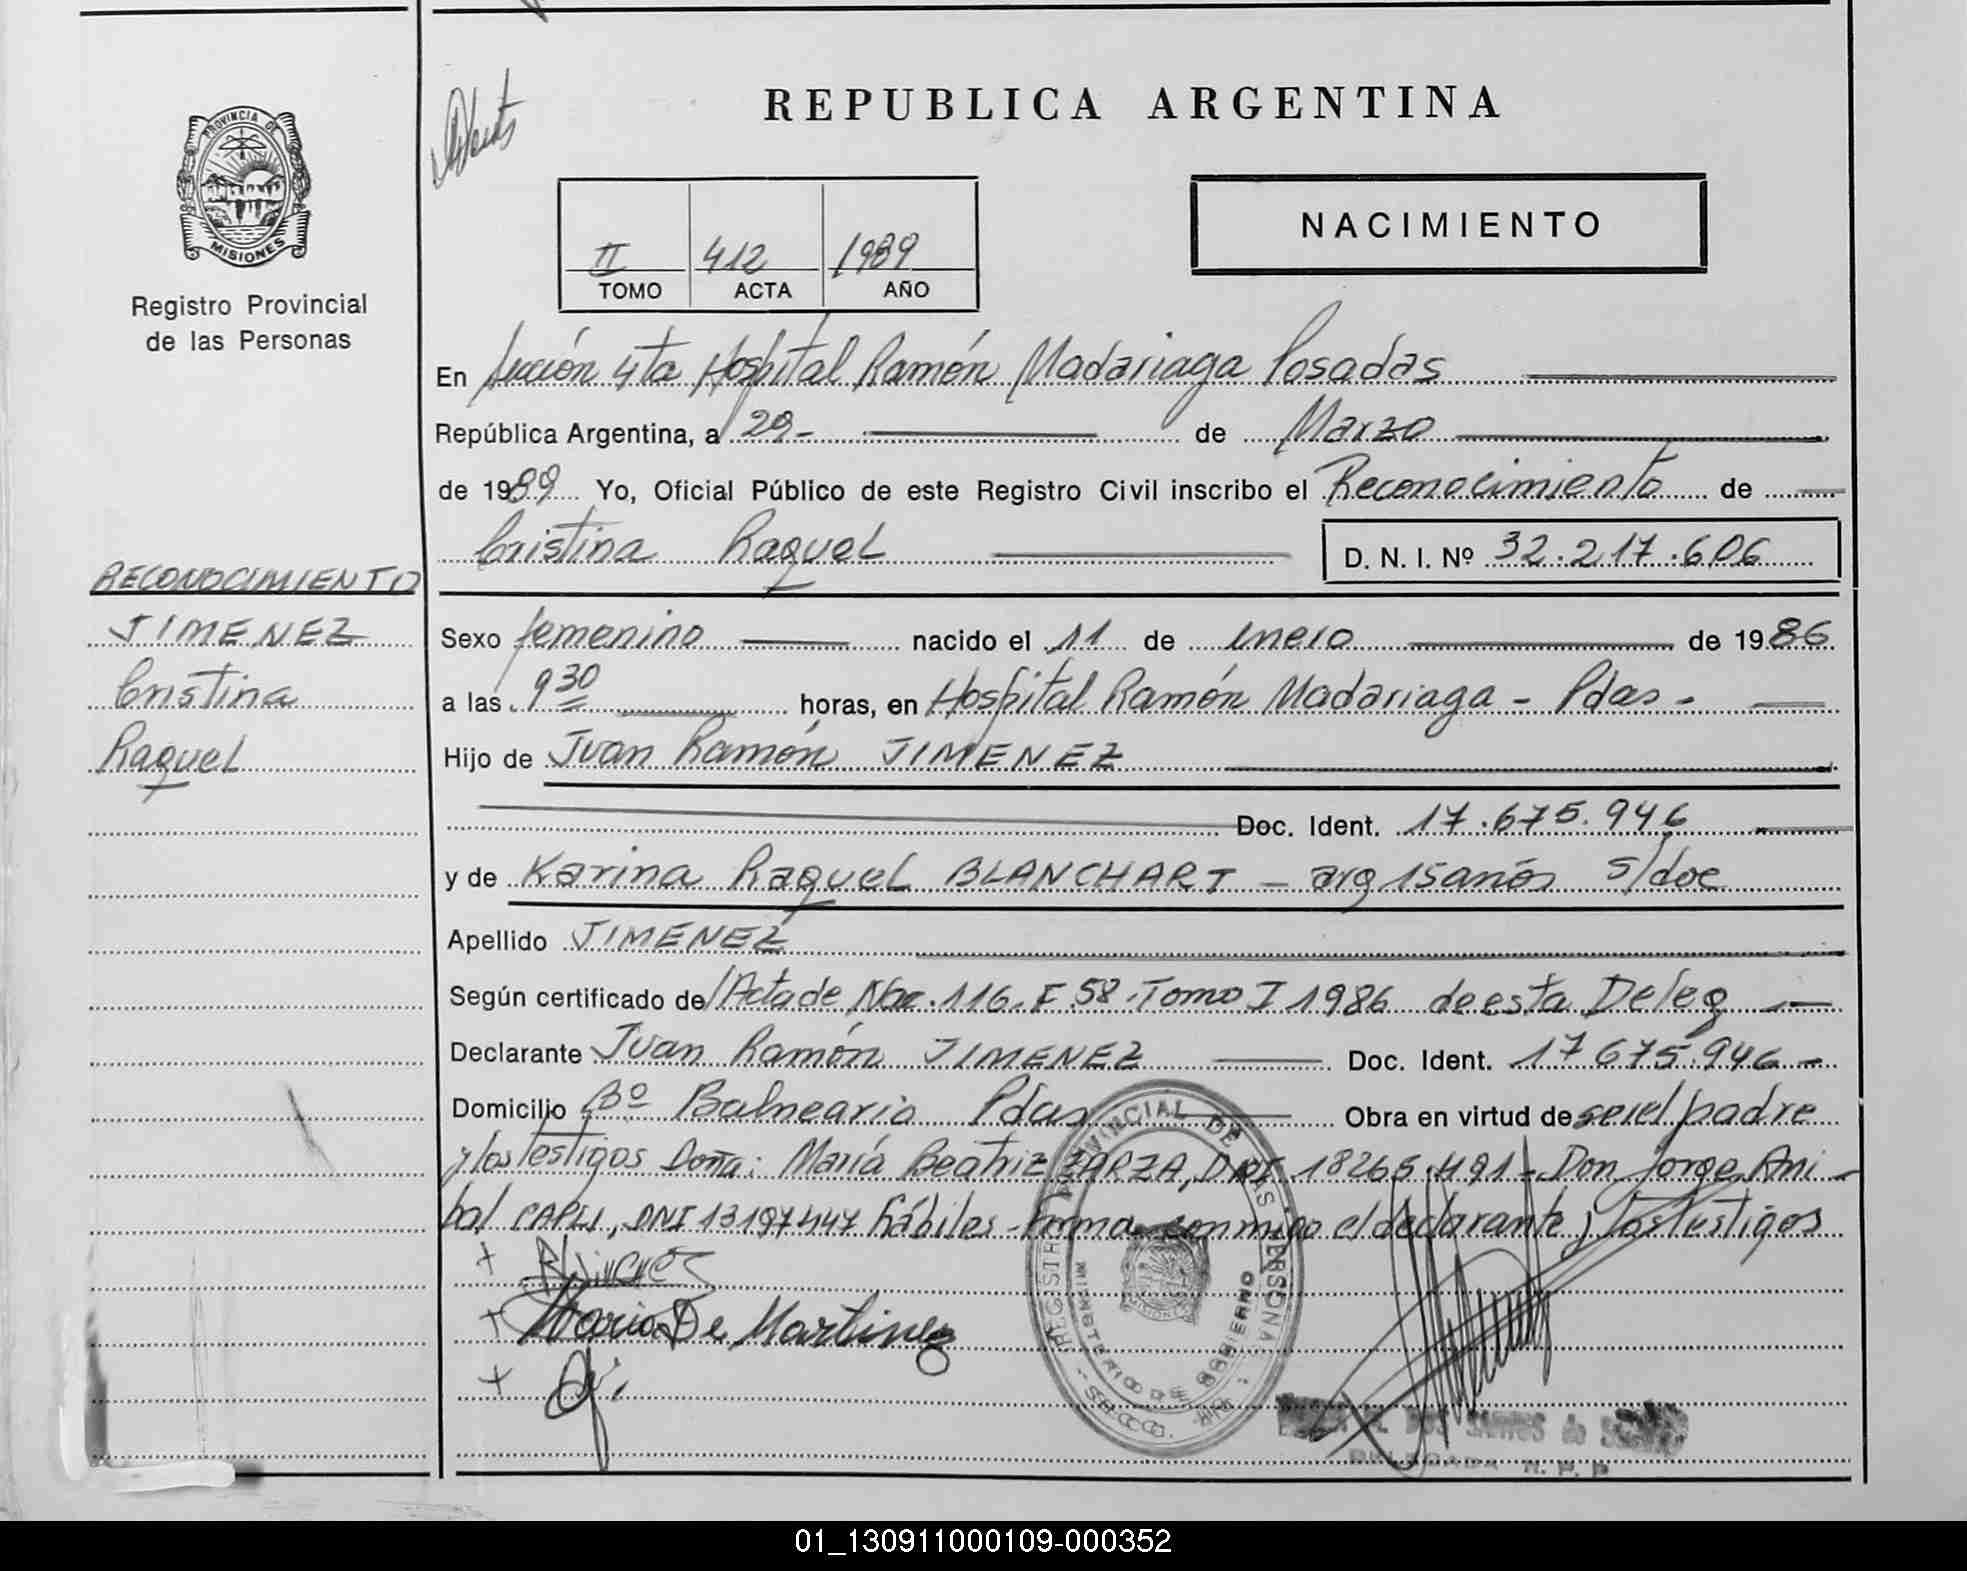 REPUBLICA ARGENTINA
PROVINCIA DE
MISIONES
Registro Provincial
de las Personas
NACIMIENTO
II 412 1989
TOMO ACTA AÑO
En Sección 4ta Hospital Ramón Madariaga Posadas
República Argentina, a 29- de Marzo
de 1989 Yo, Oficial Público de este Registro Civil inscribo el Reconocimiento de
Cristina Raquel D. N. I. Nº 32.217.606
RECONOCIMIENTO
JIMENEZ
Cristina
Raquel
Sexo femenino nacido el 11 de enero de 1986
a las 9 30 horas, en Hospital Ramón Madariaga - Pdas -
Hijo de Juan Ramón JIMENEZ
Doc. Ident. 17.675.946
y de Karina Raquel BLANCHART - arg 15 años s/doc
Apellido JIMENEZ
Según certificado de Acta de Nac. 116. F 58. Tomo I 1986 de esta Deleg
Declarante Juan Ramón JIMENEZ Doc. Ident. 17.675.946 -
Domicilio Bº Balneario Pdas Obra en virtud de ser el padre
y los testigos Doña: María Beatriz ZARZA, DNI 18265.491 - Don Jorge Ani-
bal, DNI 13197447 hábiles - Firma conmigo el declarante y los testigos
+
+ Maria De Martinez
+
REGISTRO PROVINCIAL DE LAS PERSONAS
MINISTERIO DE GOBIERNO
DOS SANTOS de
DELEGADA R. P. P
01_130911000109-000352